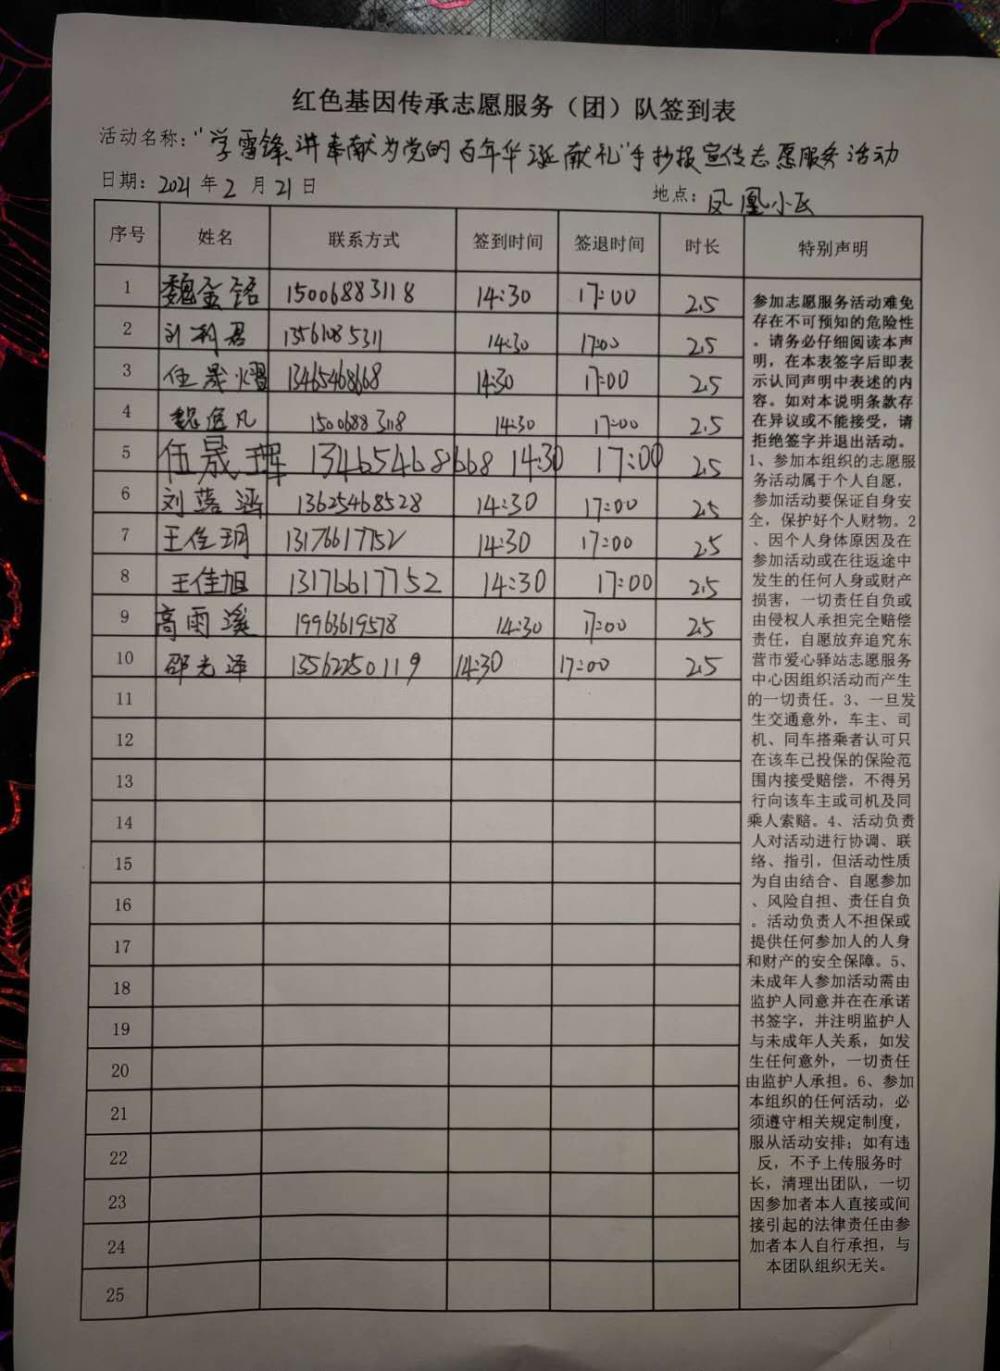 红色基因传承志愿服务（团）队签到表
活动名称："学雷锋、讲奉献为党的百年华诞献礼"手抄报宣传志愿服务活动
日期：2021年2月21日 地点：凤凰小区
序号 姓名 联系方式 签到时间 签退时间 时长 特别声明
1 魏金铭 15006883118 14:30 17:00 2.5
2 刘利君 13561085311 14:30 17:00 2.5
3 伍晟熠 13465468668 14:30 17:00 2.5
4 魏 凡 15006883118 14:30 17:00 2.5
5 伍晟珲 13465468668 14:30 17:00 2.5
6 刘蕗涵 13625468528 14:30 17:00 2.5
7 王佳玥 13176617752 14:30 17:00 2.5
8 王佳旭 13176617752 14:30 17:00 2.5
9 高雨溪 19963619578 14:30 17:00 2.5
10 邵光泽 13562250119 14:30 17:00 2.5
11
12
13
14
15
16
17
18
19
20
21
22
23
24
25
参加志愿服务活动难免
存在不可预知的危险性
。请务必仔细阅读本声
明，在本表签字后即表
示认同声明中表述的内
容。如对本说明条款存
在异议或不能接受，请
拒绝签字并退出活动。
1、参加本组织的志愿服
务活动属于个人自愿，
参加活动要保证自身安
全，保护好个人财物。2
、因个人身体原因及在
参加活动或在往返途中
发生的任何人身或财产
损害，一切责任自负或
由侵权人承担完全赔偿
责任，自愿放弃追究东
营市爱心驿站志愿服务
中心因组织活动而产生
的一切责任。3、一旦发
生交通意外，车主、司
机、同车搭乘者认可只
在该车已投保的保险范
围内接受赔偿，不得另
行向该车主或司机及同
乘人索赔。4、活动负责
人对活动进行协调、联
络、指引，但活动性质
为自由结合、自愿参加
、风险自担、责任自负
。活动负责人不担保或
提供任何参加人的人身
和财产的安全保障。5、
未成年人参加活动需由
监护人同意并在在承诺
书签字，并注明监护人
与未成年人关系，如发
生任何意外，一切责任
由监护人承担。6、参加
本组织的任何活动，必
须遵守相关规定制度，
服从活动安排；如有违
反，不予上传服务时
长，清理出团队，一切
因参加者本人直接或间
接引起的法律责任由参
加者本人自行承担，与
本团队组织无关。